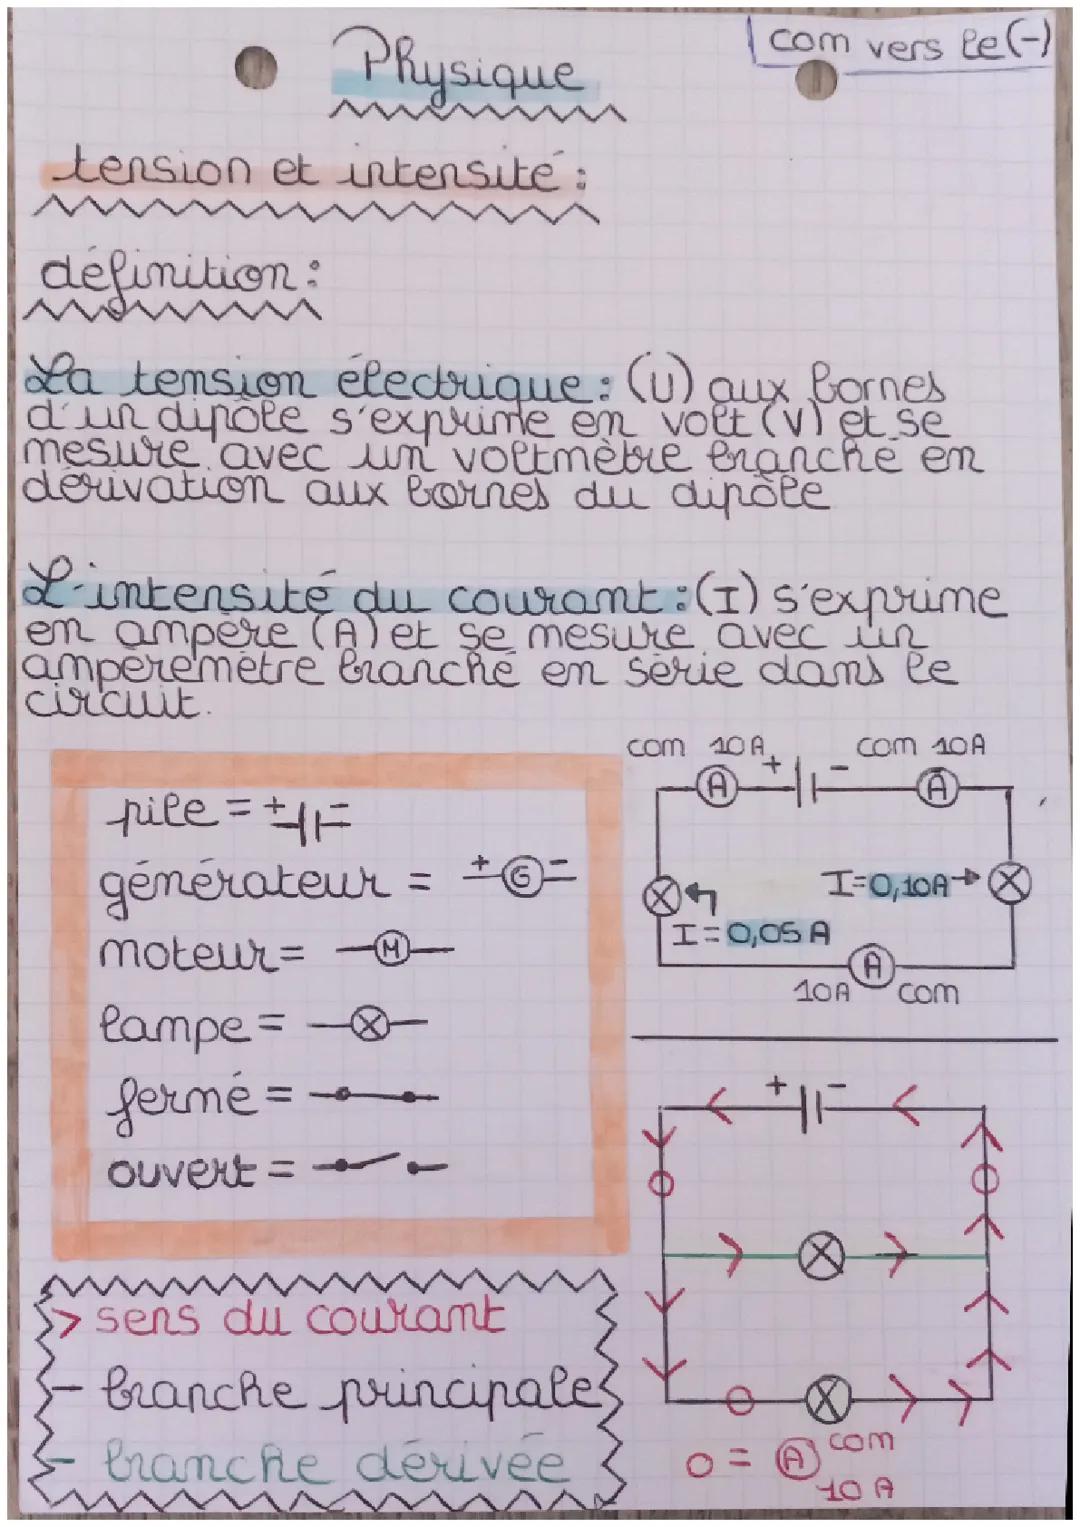 Physique
com vers le (-)
tension et intensité :
définition :
La tension électrique : (U) aux bornes
d'un dipôle s'exprime en volt (V) et se
mesure avec un voltmètre branché en
dérivation aux bornes du dipôle
L'intensité du courant : (I) s'exprime
en ampère (A) et se mesure avec un
ampèremètre branché en série dans le
circuit.
pile = + -
générateur = + G -
moteur = M
lampe =
fermé =
ouvert =
com 10A com 10A
+ -
A A
I=0,10A
I=0,05A
A
10A com
+ -
> sens du courant
- branche principale
- branche dérivée
o = A com
10 A